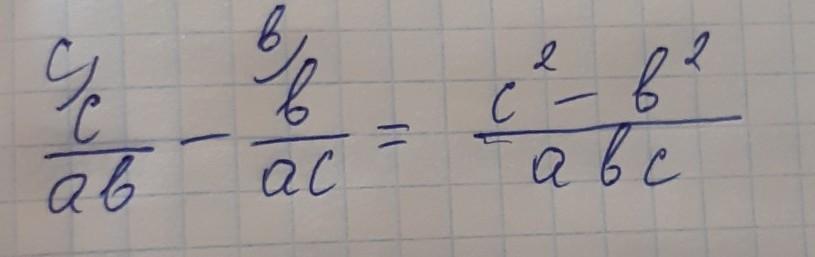 c/ c/ab − b/ b/ac = c² − b²/abc